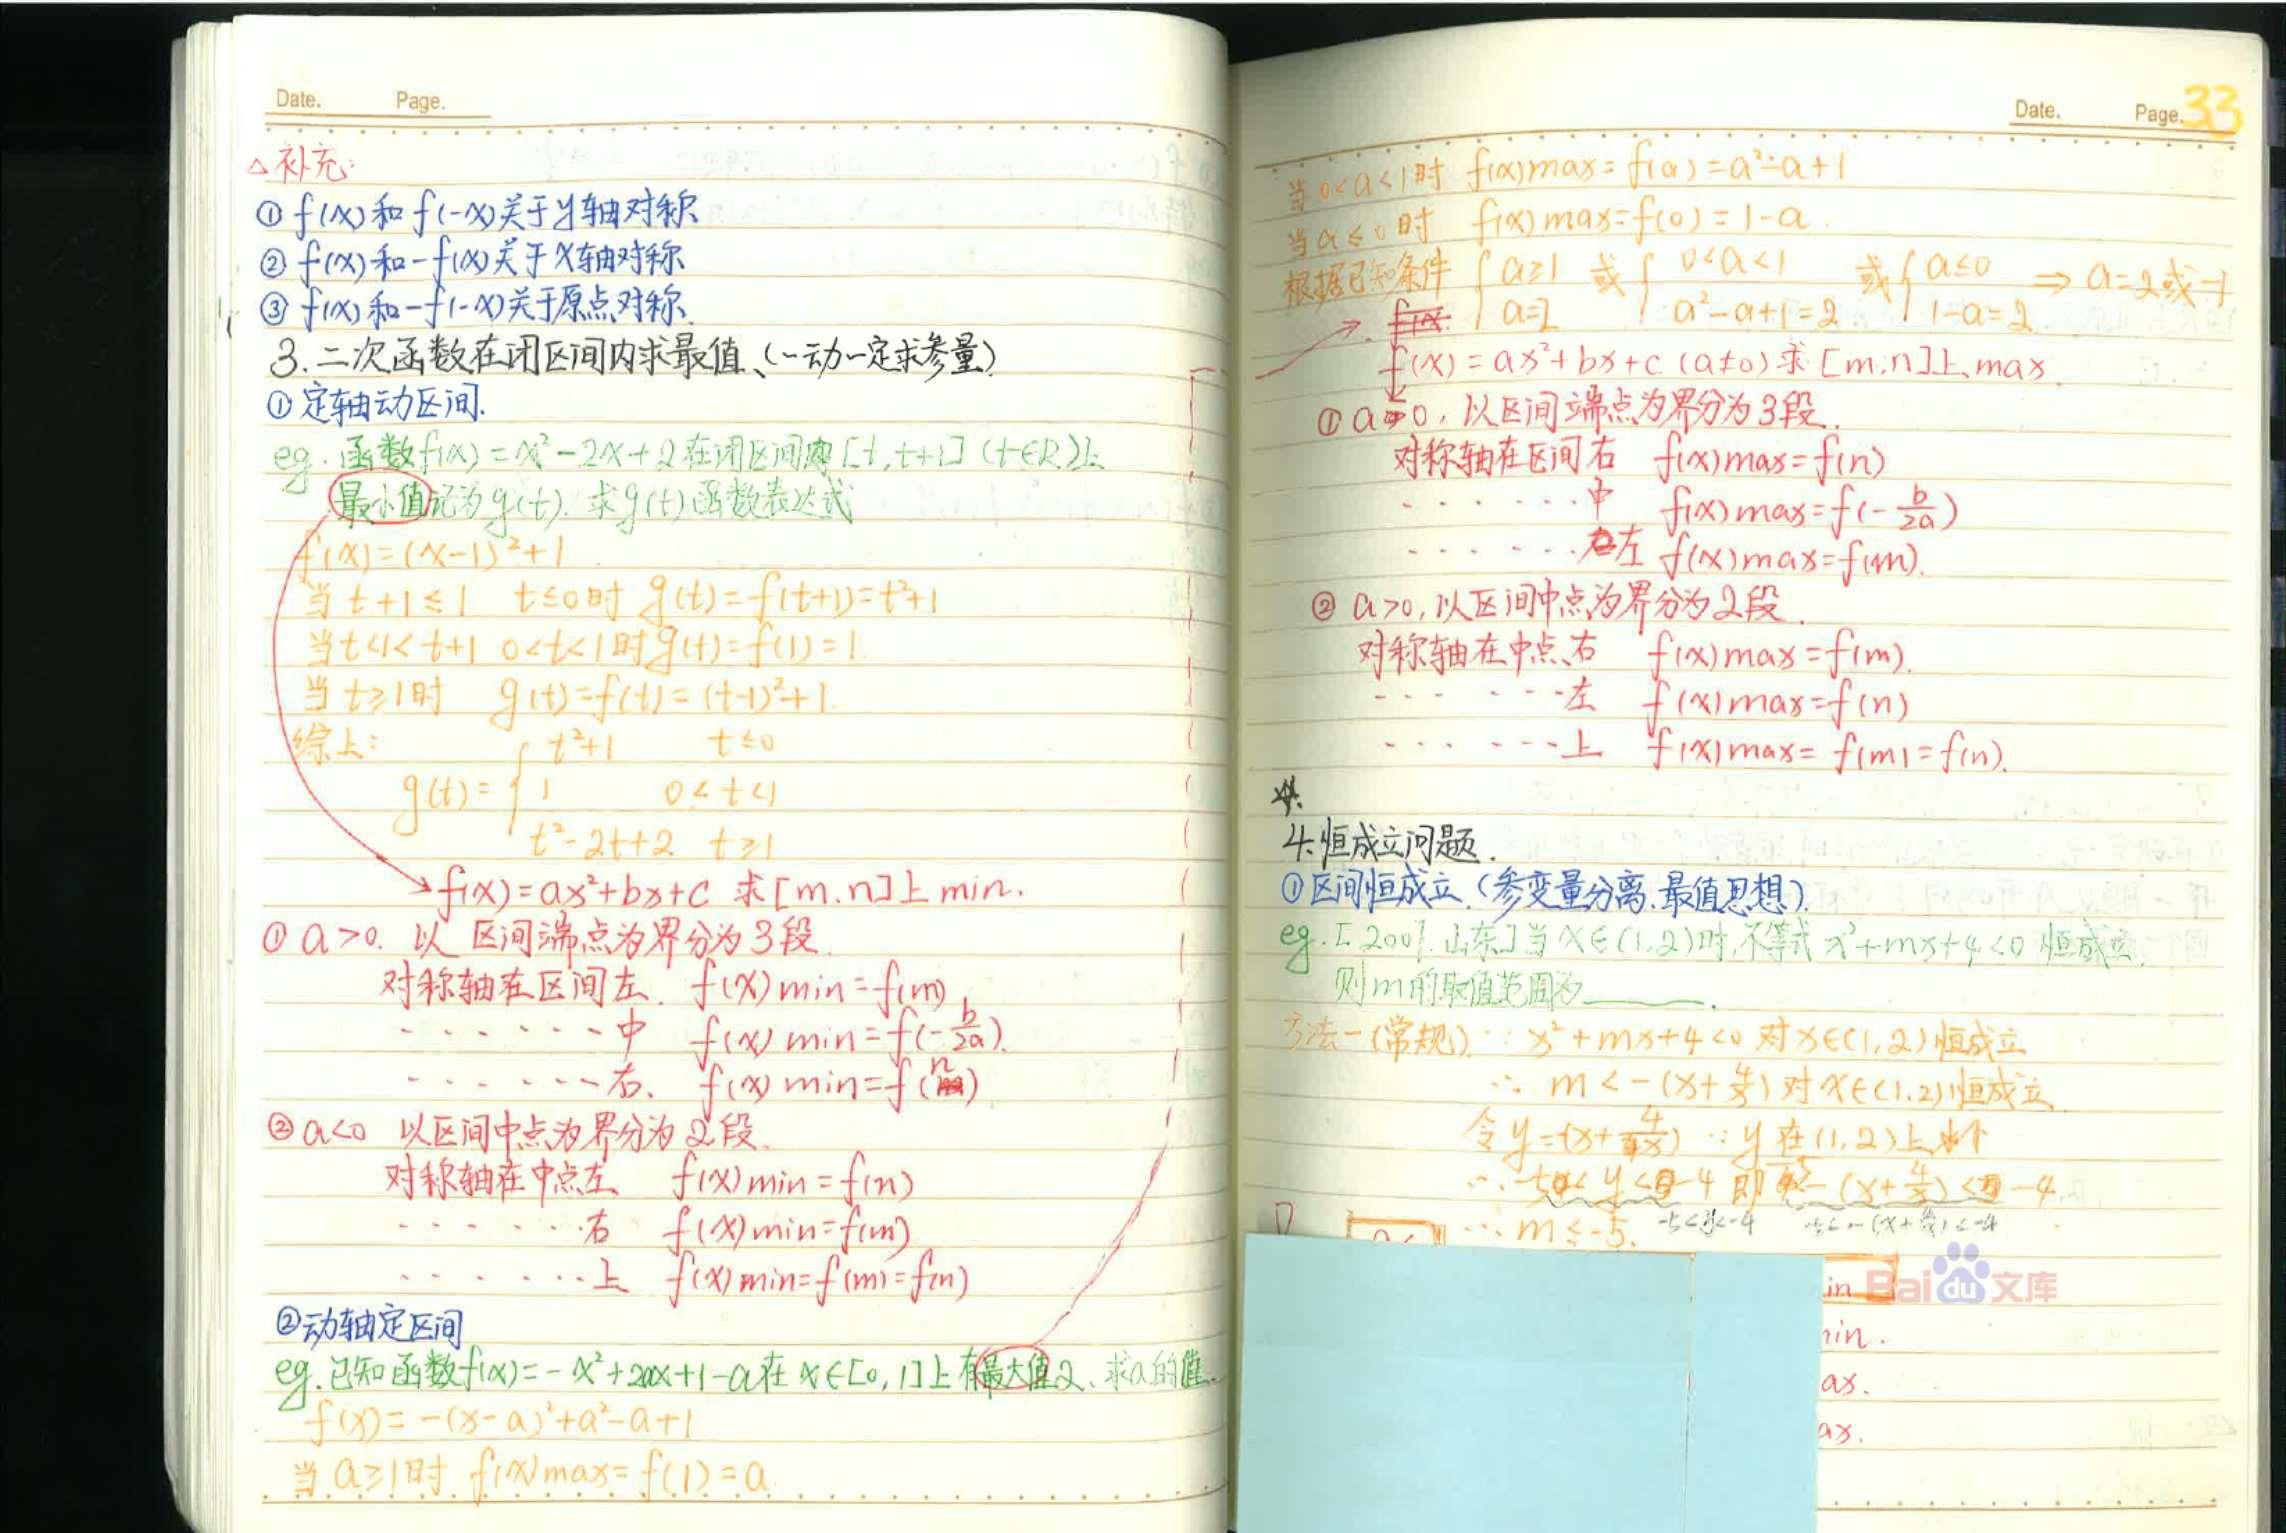 Date. Page.
△补充:
① f(x)和f(-x)关于y轴对称
② f(x)和-f(x)关于x轴对称
③ f(x)和-f(-x)关于原点对称.
3.二次函数在闭区间内求最值、(一动一定求参量)
① 定轴动区间.
eg.函数f(x)=x²-2x+2在闭区间[t,t+1](t∈R)上
最小值记为g(t).求g(t)函数表达式
f(x)=(x-1)²+1
当t+1≤1 t≤0时 g(t)=f(t+1)=t²+1
当t<1<t+1 0<t<1时g(t)=f(1)=1.
当t≥1时 g(t)=f(t)=(t-1)²+1.
综上:
g(t)={ t²+1 t≤0
1 0<t<1
t²-2t+2 t≥1
f(x)=ax²+bx+c 求[m.n]上min.
① a>0. 以区间端点为界分为3段.
对称轴在区间左. f(x)min=f(m)
······中 f(x)min=f(-b/2a).
······右、 f(x)min=f(n)
② a<0 以区间中点为界分为2段.
对称轴在中点左 f(x)min=f(n)
······右 f(x)min=f(m)
······上 f(x)min=f(m)=f(n)
②动轴定区间
eg.已知函数f(x)=-x²+2ax+1-a在x∈[0,1]上有最大值2、求a的值.
f(x)=-(x-a)²+a²-a+1
当a≥1时 f(x)max=f(1)=a
Date. Page.33
当0<a<1时 f(x)max=f(a)=a²-a+1
当a≤0时 f(x)max=f(0)=1-a.
根据已知条件 { a≥1 或 { 0<a<1 或 { a≤0 ⇒ a=2或-1
a=2 a²-a+1=2 1-a=2
f(x)=ax²+bx+c(a≠0)求[m.n]上max.
① a<0, 以区间端点为界分为3段.
对称轴在区间右 f(x)max=f(n)
······中 f(x)max=f(-b/2a)
······左 f(x)max=f(m).
② a>0,以区间中点为界分为2段.
对称轴在中点右 f(x)max=f(m).
······左 f(x)max=f(n)
······上 f(x)max=f(m)=f(n).
4.恒成立问题.
①区间恒成立.(参变量分离.最值思想)
eg.[2007.山东]当x∈(1,2)时,不等式x²+mx+4<0恒成立.
则m的取值范围为______.
方法一(常规) ∵x²+mx+4<0对x∈(1,2)恒成立
∴m<-(x+4/x)对x∈(1.2)恒成立
令y=-(x+4/x) ∵y在(1,2)上↑
∴-5<y<-4 即-5<-(x+4/x)<-4
∴m≤-5. -5<y<-4 -5<-(x+4/x)<-4
in
Baidu文库
min.
ax.
ax.